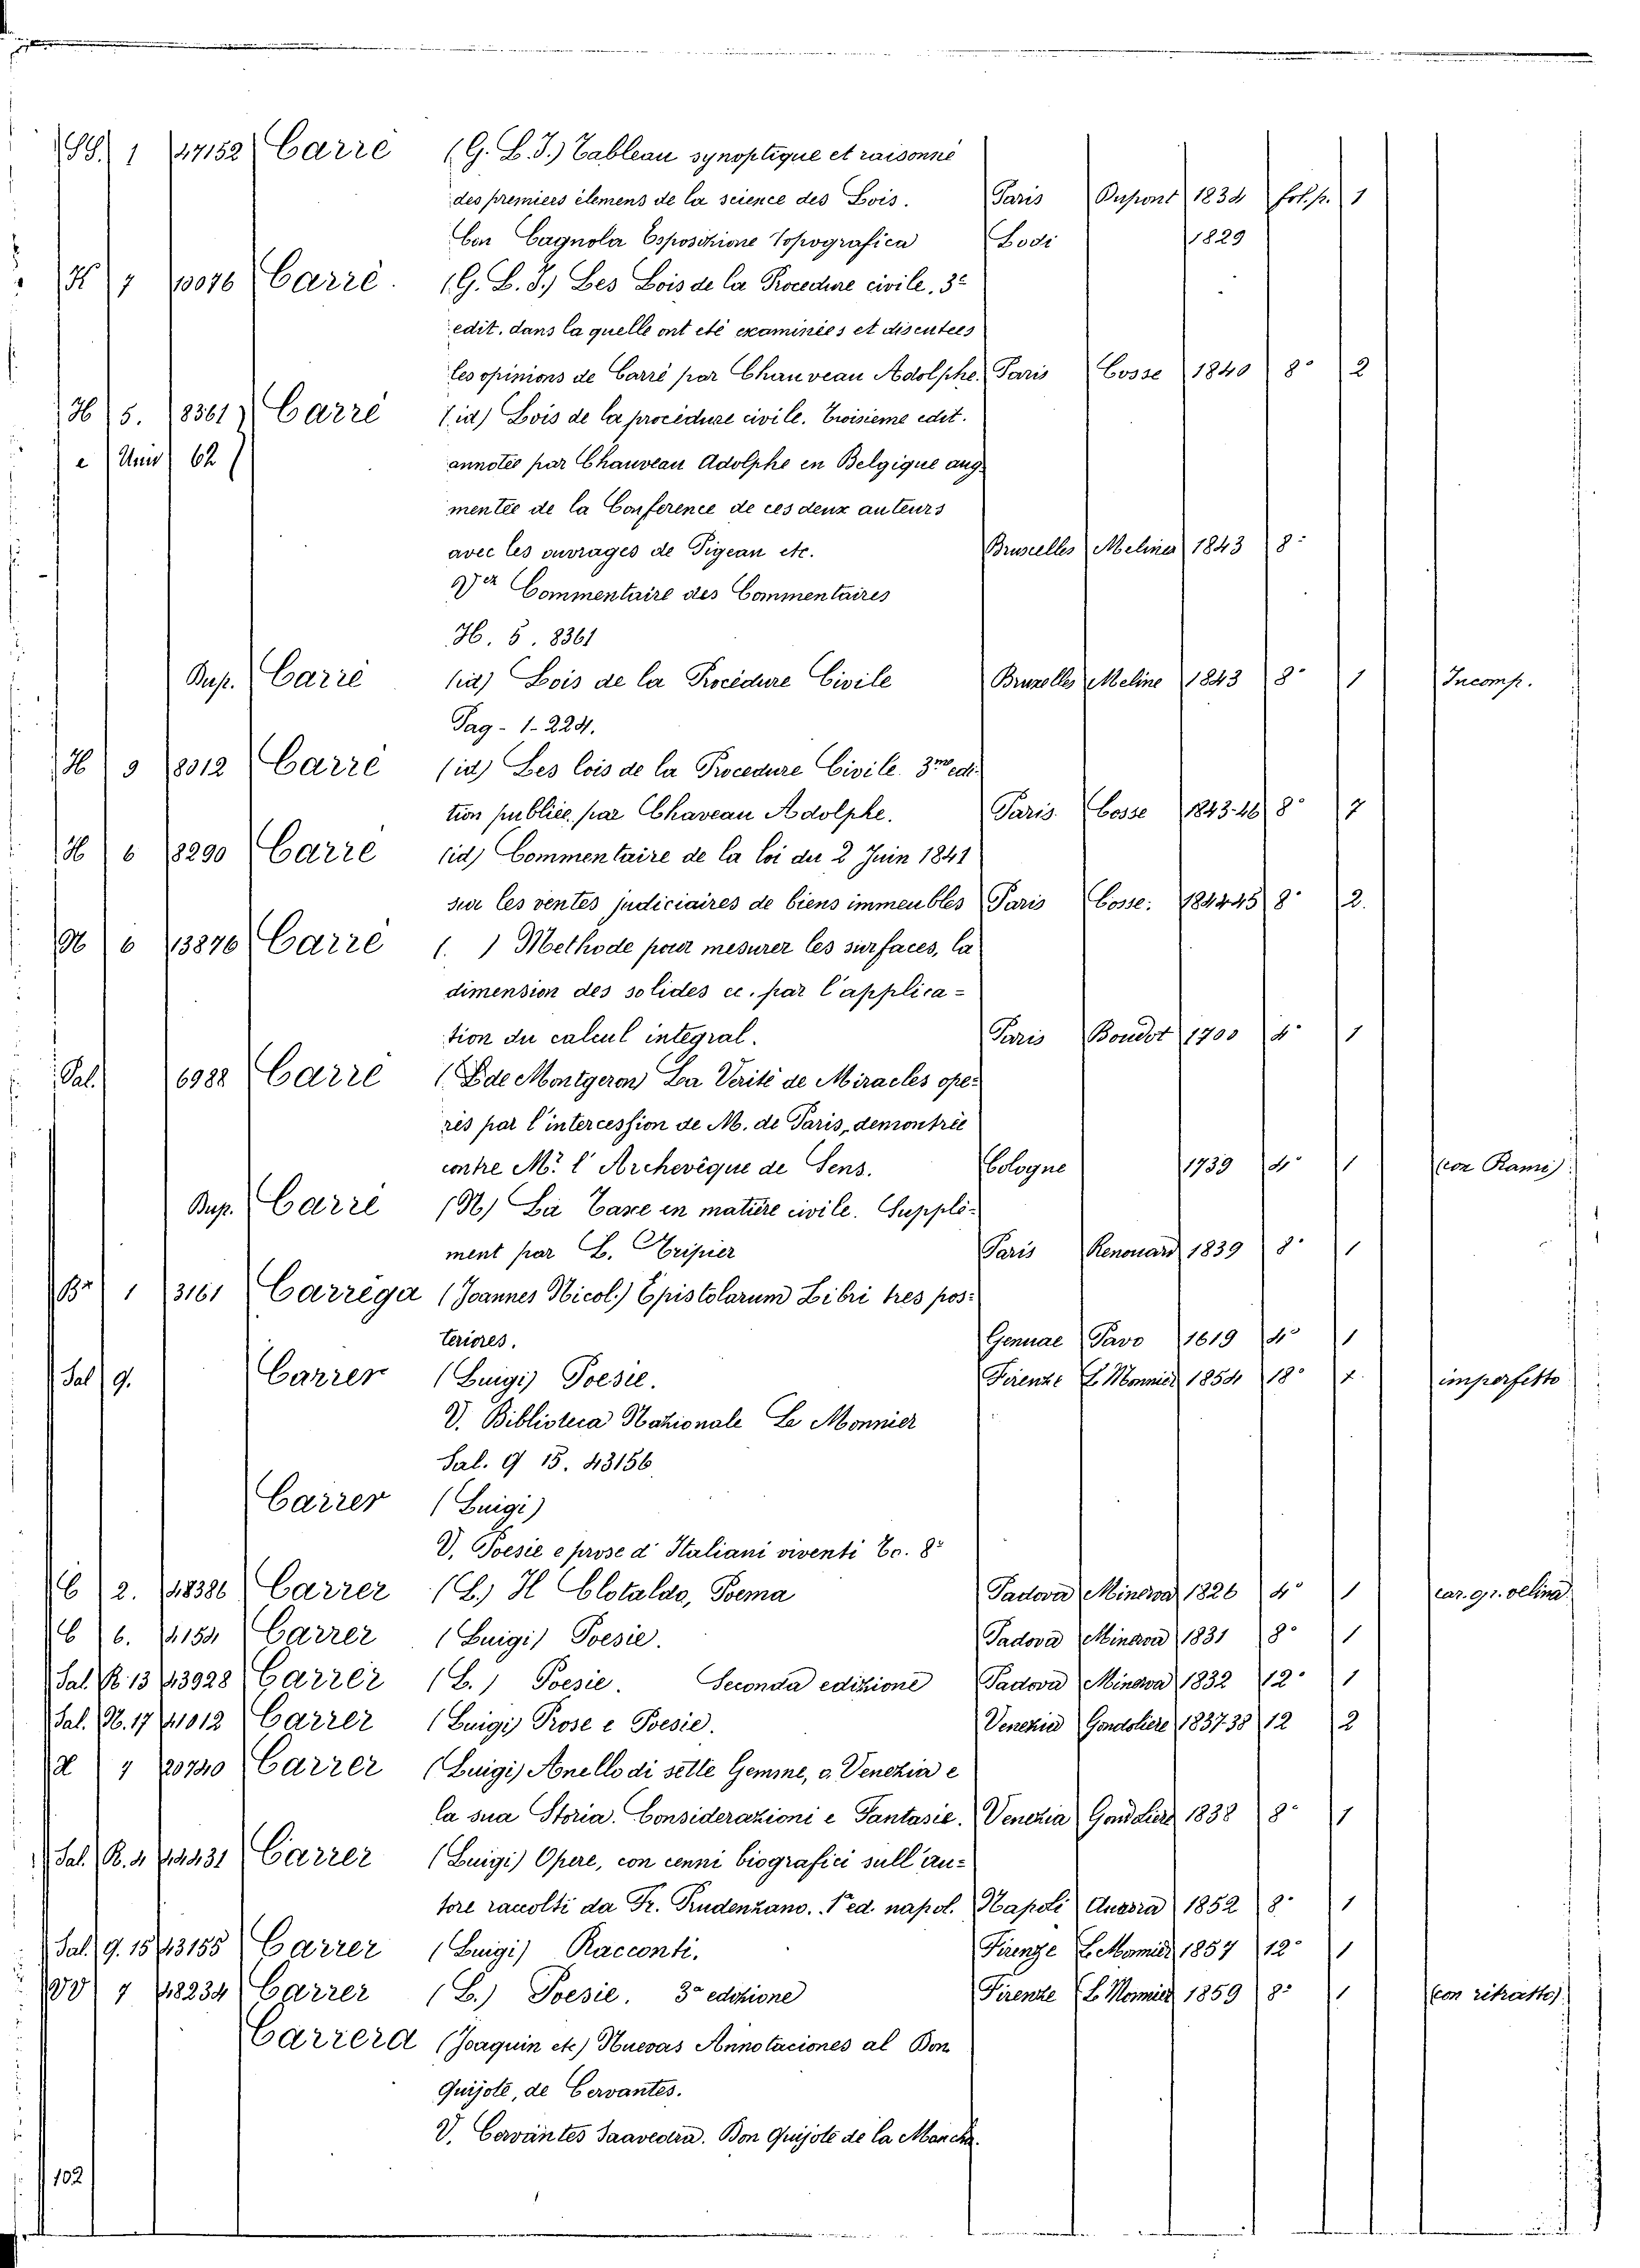 1 47152 Carré (G. L. J.) Tableau synoptique et raisonné
des premiers élemens de la science des Lois. Paris Dupont 1834 fol. p. 1
Con Cagnola Esposizione Topografica Lodi 1829
7 13076 Carré. (G. L. J.) Les Lois de la Procedure civile. 3e
edit. dans la quelle ont eté examinées et discutées
les opinions de Carré par Chauveau Adolphe. Paris Cosse 1840 8° 2
H 5. 8361 Carré (id) Lois de la procédure civile. Troisieme edit.
e Uni 62 annotée par Chauveau Adolphe en Belgique aug
mentée de la Conference de ces deux auteurs
avec les ouvrages de Pigeau etc. Bruxelles Meline 1843 8°
Commentaire des Commentaires
H. 5. 8361
Dup. Carré (id) Lois de la Procédure Civile Bruxelles Meline 1843 8° 1 Incomp.
Pag - 1-224.
H 9 8012 Carré (id) Les lois de la Procedure Civile. 3me edi
tion publiée par Chaveau Adolphe. Paris. Cosse 1843-46 8° 7
H 6 8290 Carré (id) Commentaire de la loi du 2 Juin 1841
sur les ventes judiciaires de biens immeubles Paris Cosse. 1844-45 8° 2.
6 13876 Carré ( ) Methode pour mesurer les surfaces, la
dimension des solides ec. par l'applica-
tion du calcul integral. Paris Boudot 1700 4° 1
Pal. 6988 Carré (E de Montgeron) La Verité de Miracles ope-
rés par l'intercession de M. de Paris, demontrée
contre M.r l'Archevêque de Sens. Cologne 1739 4° 1 (con Rami)
Dup. Carré (N) La Taxe en matière civile. Supplé-
ment par L. Tripier Paris Renouard 1839 8° 1
1 3161 Carrega (Joannes Nicol.) Epistolarum Libri tres pos-
teriores. Genuae Pavo 1619 4° 1
Sal 9. Carrer (Luigi) Poesie. Firenze L. Monnier 1854 18° imperfetto
V. Biblioteca Nazionale Le Monnier
Sal. 9 15. 43156
Carrer (Luigi)
V. Poesie e prose d'Italiani viventi Ec. 8°
C 2. 48386 Carrer (L.) Il Clotaldo, Poema Padova Minerva 1826 4° 1 car. gr. velina
C 6. 4154 Carrer (Luigi) Poesie. Padova Minerva 1831 8° 1
Sal. R. 13 43928 Carrer (L.) Poesie. Seconda edizione Padova Minerva 1832 12° 1
Sal. N. 17 41012 Carrer (Luigi) Prose e Poesie. Venezia Gondoliere 1837-38 12 2
7 20740 Carrer (Luigi) Anello di sette Gemme, o Venezia e
la sua Storia. Considerazioni e Fantasie. Venezia Gondoliere 1838 8° 1
Sal. R. 4 44431 Carrer (Luigi) Opere, con cenni biografici sull'au-
tore raccolti da Fr. Prudenzano. 1a ed. napol. Napoli 1852 8° 1
Sal. 9. 15 43155 Carrer (Luigi) Racconti. Firenze Le Monnier 1857 12° 1
7 48234 Carrer (L.) Poesie. 3a edizione Firenze L. Monnier 1859 8° 1 (con ritratto)
Carrera (Joaquin etc) Nuevas Annotaciones al Don
Quijote, de Cervantes.
V. Cervantes Saavedra. Don Quijote de la Mancha.
102